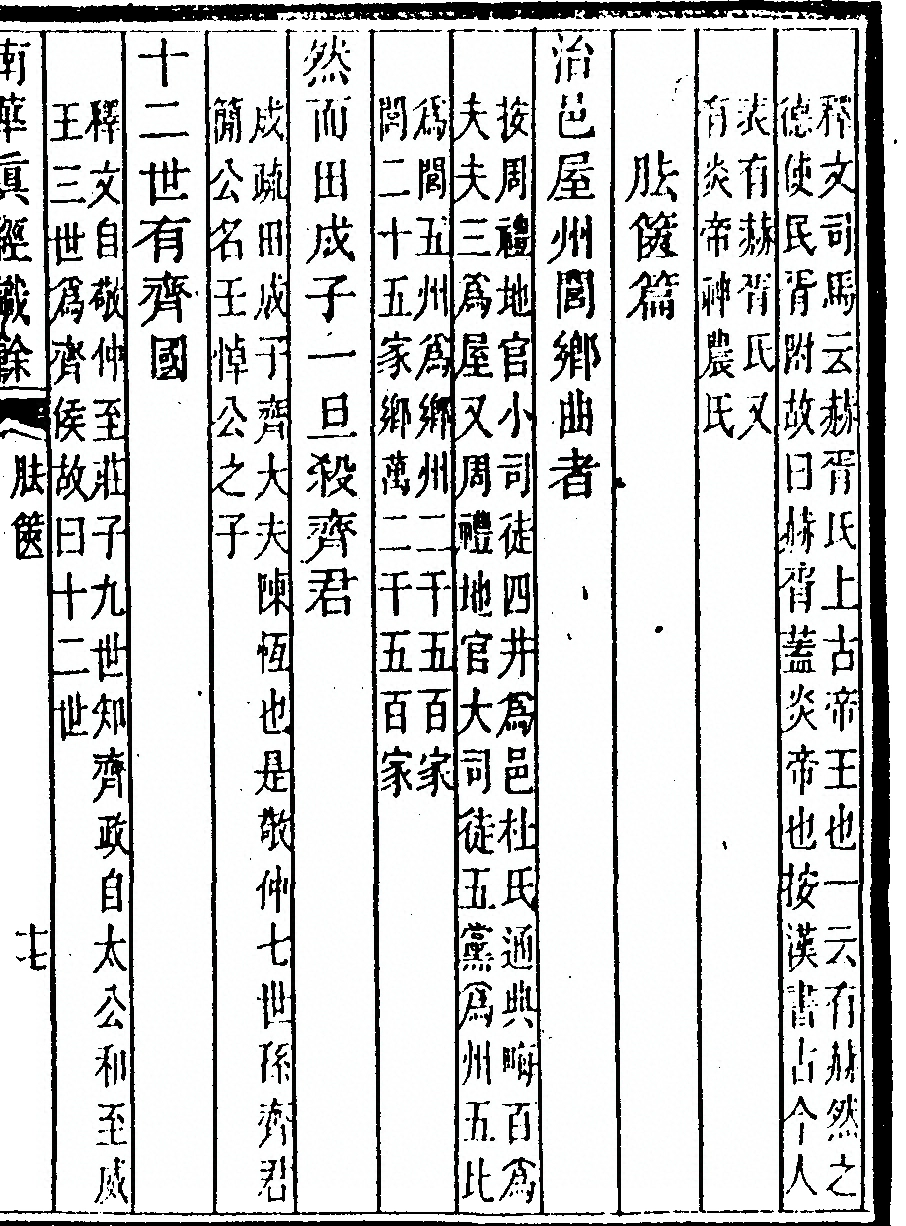 釋文司馬云赫胥氏上古帝王也一云有赫然之
德使民胥附故曰赫胥蓋炎帝也按漢書古今人
表有赫胥氏又
有炎帝神農氏
胠篋篇
治邑屋州閭鄉曲者
按周禮地官小司徒四井為邑杜氏通典畮百為
夫夫三為屋又周禮地官大司徒五黨為州五比
為閭五州為鄉州二千五百家
閭二十五家鄉萬二千五百家
然而田成子一旦殺齊君
成疏田成子齊大夫陳恆也是敬仲七世孫齊君
簡公名王悼公之子
十二世有齊國
釋文自敬仲至莊子九世知齊政自太公和至威
王三世為齊侯故曰十二世
南華真經識餘 胠篋 十七